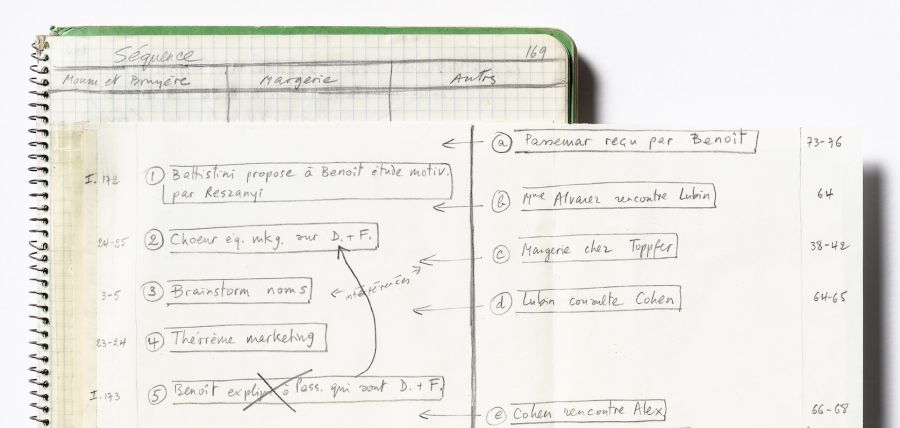 Séquence 169
Margerie Autres
a Passemar reçu par Benoît 73-76
I. 172 1 Battistini propose à Benoît étude motiv.
par Reszanyi
b Mme Alvarez rencontre Lubin 64
24-25 2 Choeur éq. mkg. sur D. + F.
c Margerie chez Toppfer 38-42
3-5 3 Brainstorm noms ← interférences →
d Lubin consulte Cohen 64-65
23-24 4 Théorème marketing
I. 173 5 Benoît explique à Pass. qui sont D. + F.
e Cohen rencontre Alex 66-68